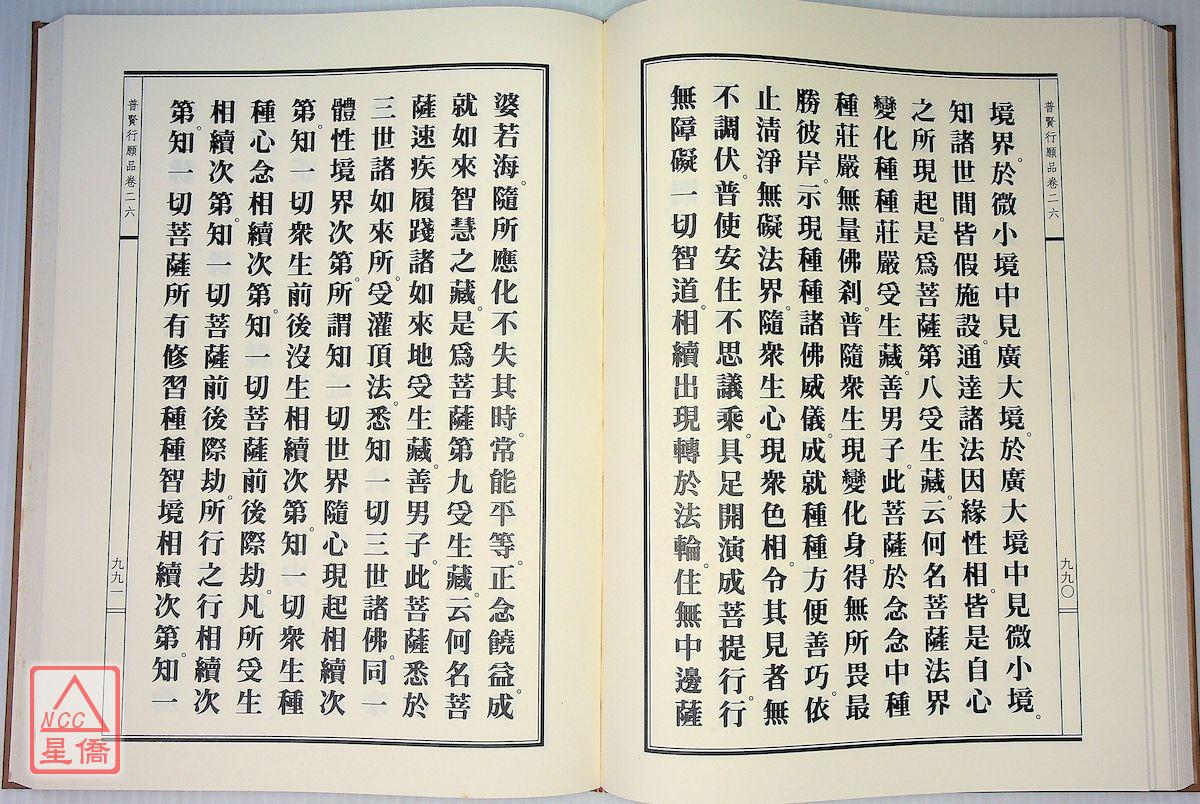 普賢行願品卷二六
九九〇
境界。於微小境中見廣大境。於廣大境中見微小境。
知諸世間皆假施設。通達諸法因緣性相。皆是自心
之所現起。是為菩薩第八受生藏。云何名菩薩法界
變化種種莊嚴受生藏。善男子。此菩薩於念念中種
種莊嚴無量佛剎。普隨衆生現變化身。得無所畏最
勝彼岸。示現種種諸佛威儀。成就種種方便善巧。依
止清淨無礙法界。隨衆生心現衆色相。令其見者無
不調伏。普使安住不思議乘。具足開演成菩提行。行
無障礙一切智道。相續出現轉於法輪。住無中邊薩
婆若海。隨所應化不失其時。常能平等。正念饒益。成
就如來智慧之藏。是為菩薩第九受生藏。云何名菩
薩速疾履踐諸如來地受生藏。善男子。此菩薩悉於
三世諸如來所。受灌頂法。悉知一切三世諸佛。同一
體性境界次第。所謂知一切世界隨心現起相續次
第。知一切衆生前後沒生相續次第。知一切衆生種
種心念相續次第。知一切菩薩前後際劫。凡所受生
相續次第。知一切菩薩前後際劫。所行之行相續次
第。知一切菩薩所有修習種種智境相續次第。知一
普賢行願品卷二六
九九一
NCC
星僑